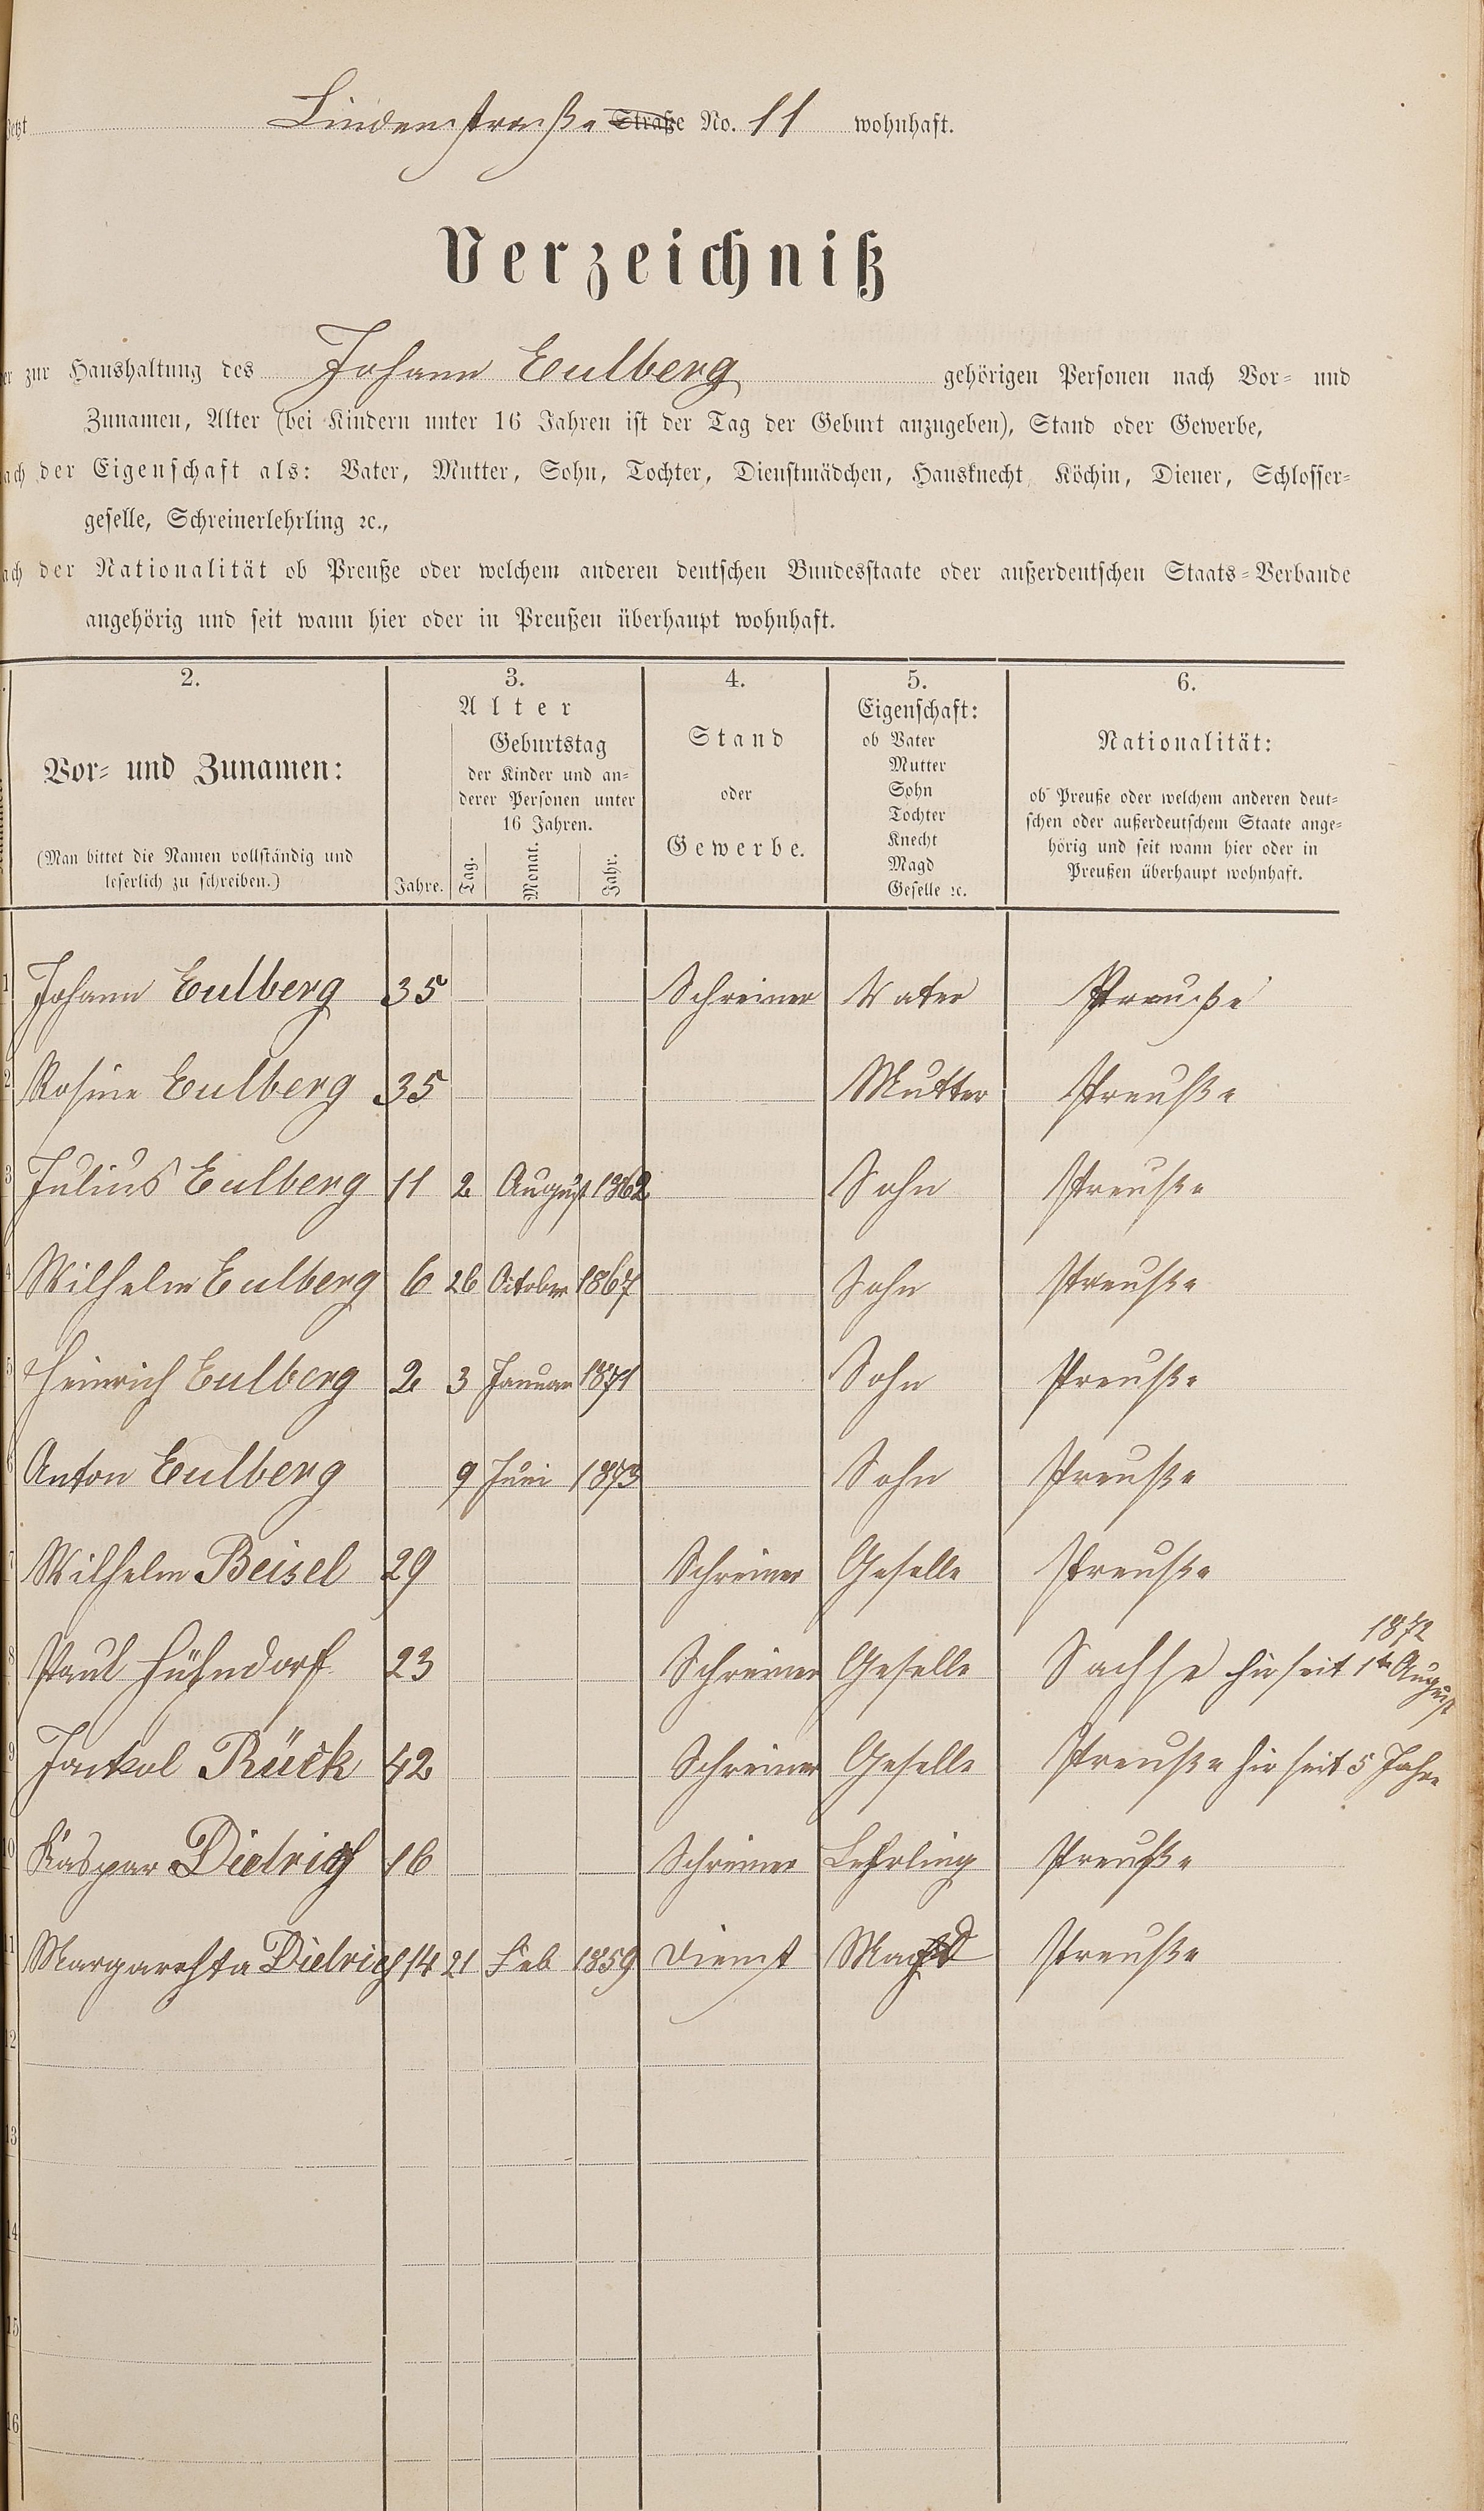 jetzt Lindenstraße Straße No. 11 wohnhaft.
Verzeichniß
er zur Haushaltung des Johann Eulberg gehörigen Personen nach Vor- und
Zunamen, Alter (bei Kindern unter 16 Jahren ist der Tag der Geburt anzugeben), Stand oder Gewerbe,
ach der Eigenschaft als: Vater, Mutter, Sohn, Tochter, Dienstmädchen, Hausknecht, Köchin, Diener, Schlosser-
geselle, Schreinerlehrling ꝛc.,
ach der Nationalität ob Preuße oder welchem anderen deutschen Bundesstaate oder außerdeutschen Staats-Verbande
angehörig und seit wann hier oder in Preußen überhaupt wohnhaft.
2. 3. 4. 5. 6.
Vor- und Zunamen:
(Man bittet die Namen vollständig und
leserlich zu schreiben.)
Alter
Jahre.
Geburtstag
der Kinder und an-
derer Personen unter
16 Jahren.
Tag. Monat. Jahr.
Stand
oder
Gewerbe.
Eigenschaft:
ob Vater
Mutter
Sohn
Tochter
Knecht
Magd
Geselle ꝛc.
Nationalität:
ob Preuße oder welchem anderen deut-
schen oder außerdeutschem Staate ange-
hörig und seit wann hier oder in
Preußen überhaupt wohnhaft.
1 Johann Eulberg 35 Schreiner Vater Preuße
2 Rosine Eulberg 35 Mutter Preuße
3 Julius Eulberg 11 2 August 1862 Sohn Preuße
4 Wilhelm Eulberg 6 26 October 1867 Sohn Preuße
5 Heinrich Eulberg 2 3 Januar 1871 Sohn Preuße
6 Anton Eulberg 9 Juni 1873 Sohn Preuße
7 Wilhelm Beisel 29 Schreiner Geselle Preuße
1872
8 Paul Hühndorf 23 Schreiner Geselle Sachse hir seit 1te August
9 Rück 42 Schreiner Geselle Preuße hir seit 5 Jahre
10 Kaspar Dietrich 16 Schreiner Lehrling Preuße
11 Margarehta Dietrich 14 21 Feb 1859 Dienst Magd Preuße
12
13
14
15
16